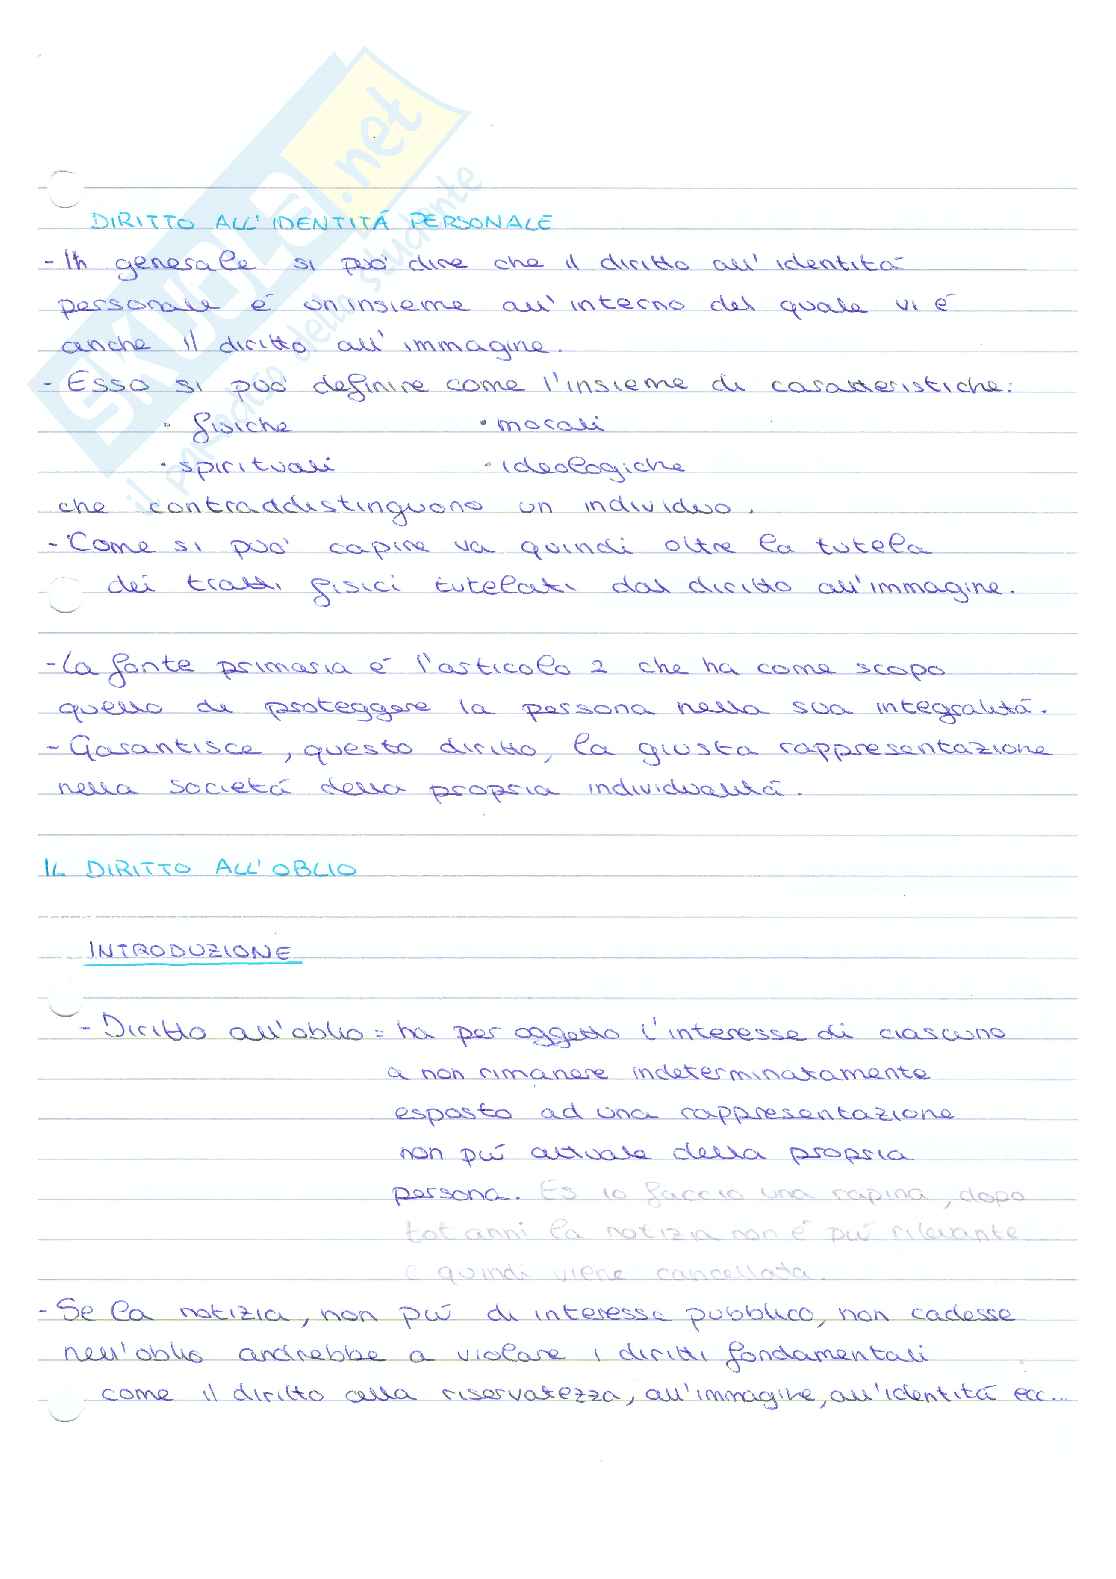 SKUOLA.net
il paradiso dello studente
DIRITTO ALL'IDENTITÁ PERSONALE
- In generale si può dire che il diritto all'identitá
personale é un insieme all'interno del quale vi é
anche il diritto all'immagine.
- Esso si può definire come l'insieme di caratteristiche:
• fisiche • morali
• spirituali • ideologiche
che contraddistinguono un individuo.
- Come si può capire va quindi oltre la tutela
dei tratti fisici tutelati dal diritto all'immagine.
- La fonte primaria é l'articolo 2 che ha come scopo
quello di proteggere la persona nella sua integralitá.
- Garantisce, questo diritto, la giusta rappresentazione
nella societá della propria individualitá.
IL DIRITTO ALL'OBLIO
INTRODUZIONE
- Diritto all'oblio = ha per oggetto l'interesse di ciascuno
a non rimanere indeterminatamente
esposto ad una rappresentazione
non piú attuale della propria
persona. Es io faccio una rapina, dopo
tot anni la notizia non é piú rilevante
e quindi viene cancellata.
- Se la notizia, non piú di interesse pubblico, non cadesse
nell'oblio andrebbe a violare i diritti fondamentali
come il diritto alla riservatezza, all'immagine, all'identitá ecc...